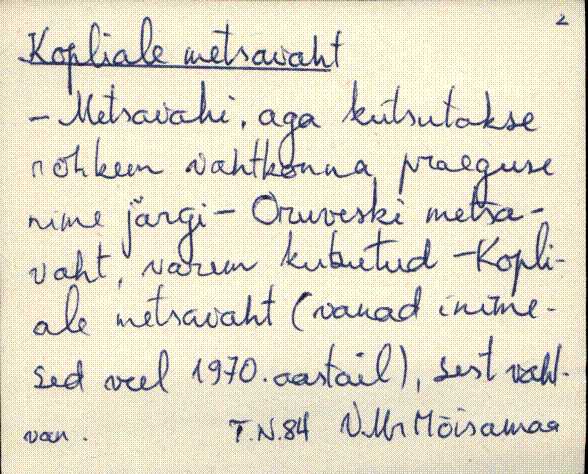 2
Kopliale metsavaht
- Metsavahi, aga kutsutakse
rohkem vahtkonna praeguse
nime järgi - Oruveski metsa-
vaht, varem kutsutud - Kopli-
ale metsavaht (vanad inime-
sed veel 1970. aastail), sest vaht-
van. T.N.84 V.Mr Mõisamaa